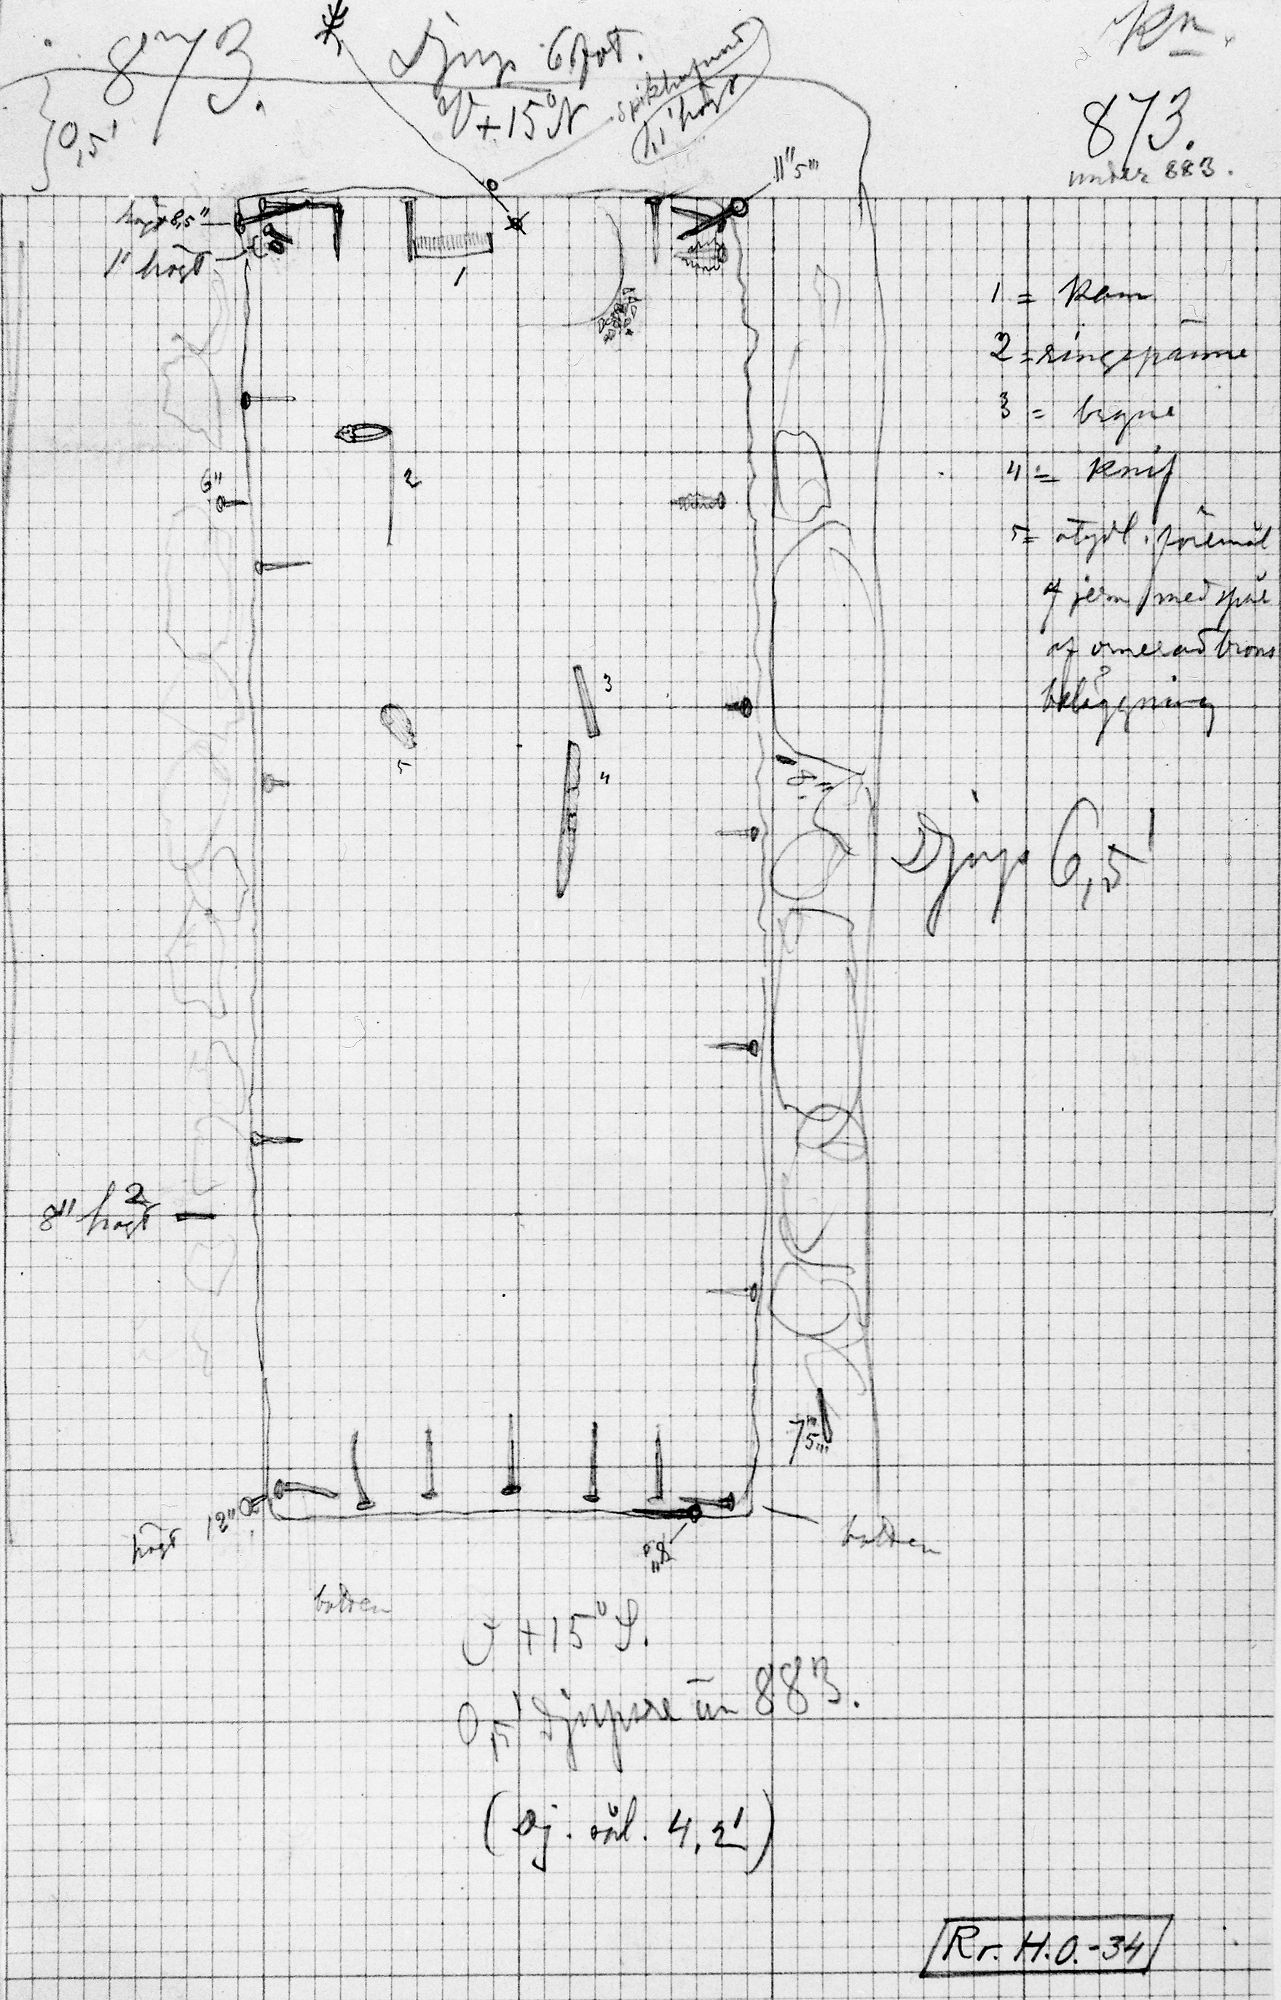 873.
Djup 6 fot.
V+15°N
spikhufvud
11" högt
0,5'
Kn.
873.
under 883.
11" 5'''
högt 8,5"
1" högt
1
1 = kam
2 = ringspänne
3 = bryne
4 = knif
5 = otydl. föremål
af jern med spår
af ornerad brons
beläggning
6"
2
3
4
5
8"
Djup 6,5'
8" högt
2
7" 5'''
högt 12"
8"
botten
botten
V+15°S.
0,5' djupare än 883.
(Dj. url. 4,2')
Rr. H.O.-34